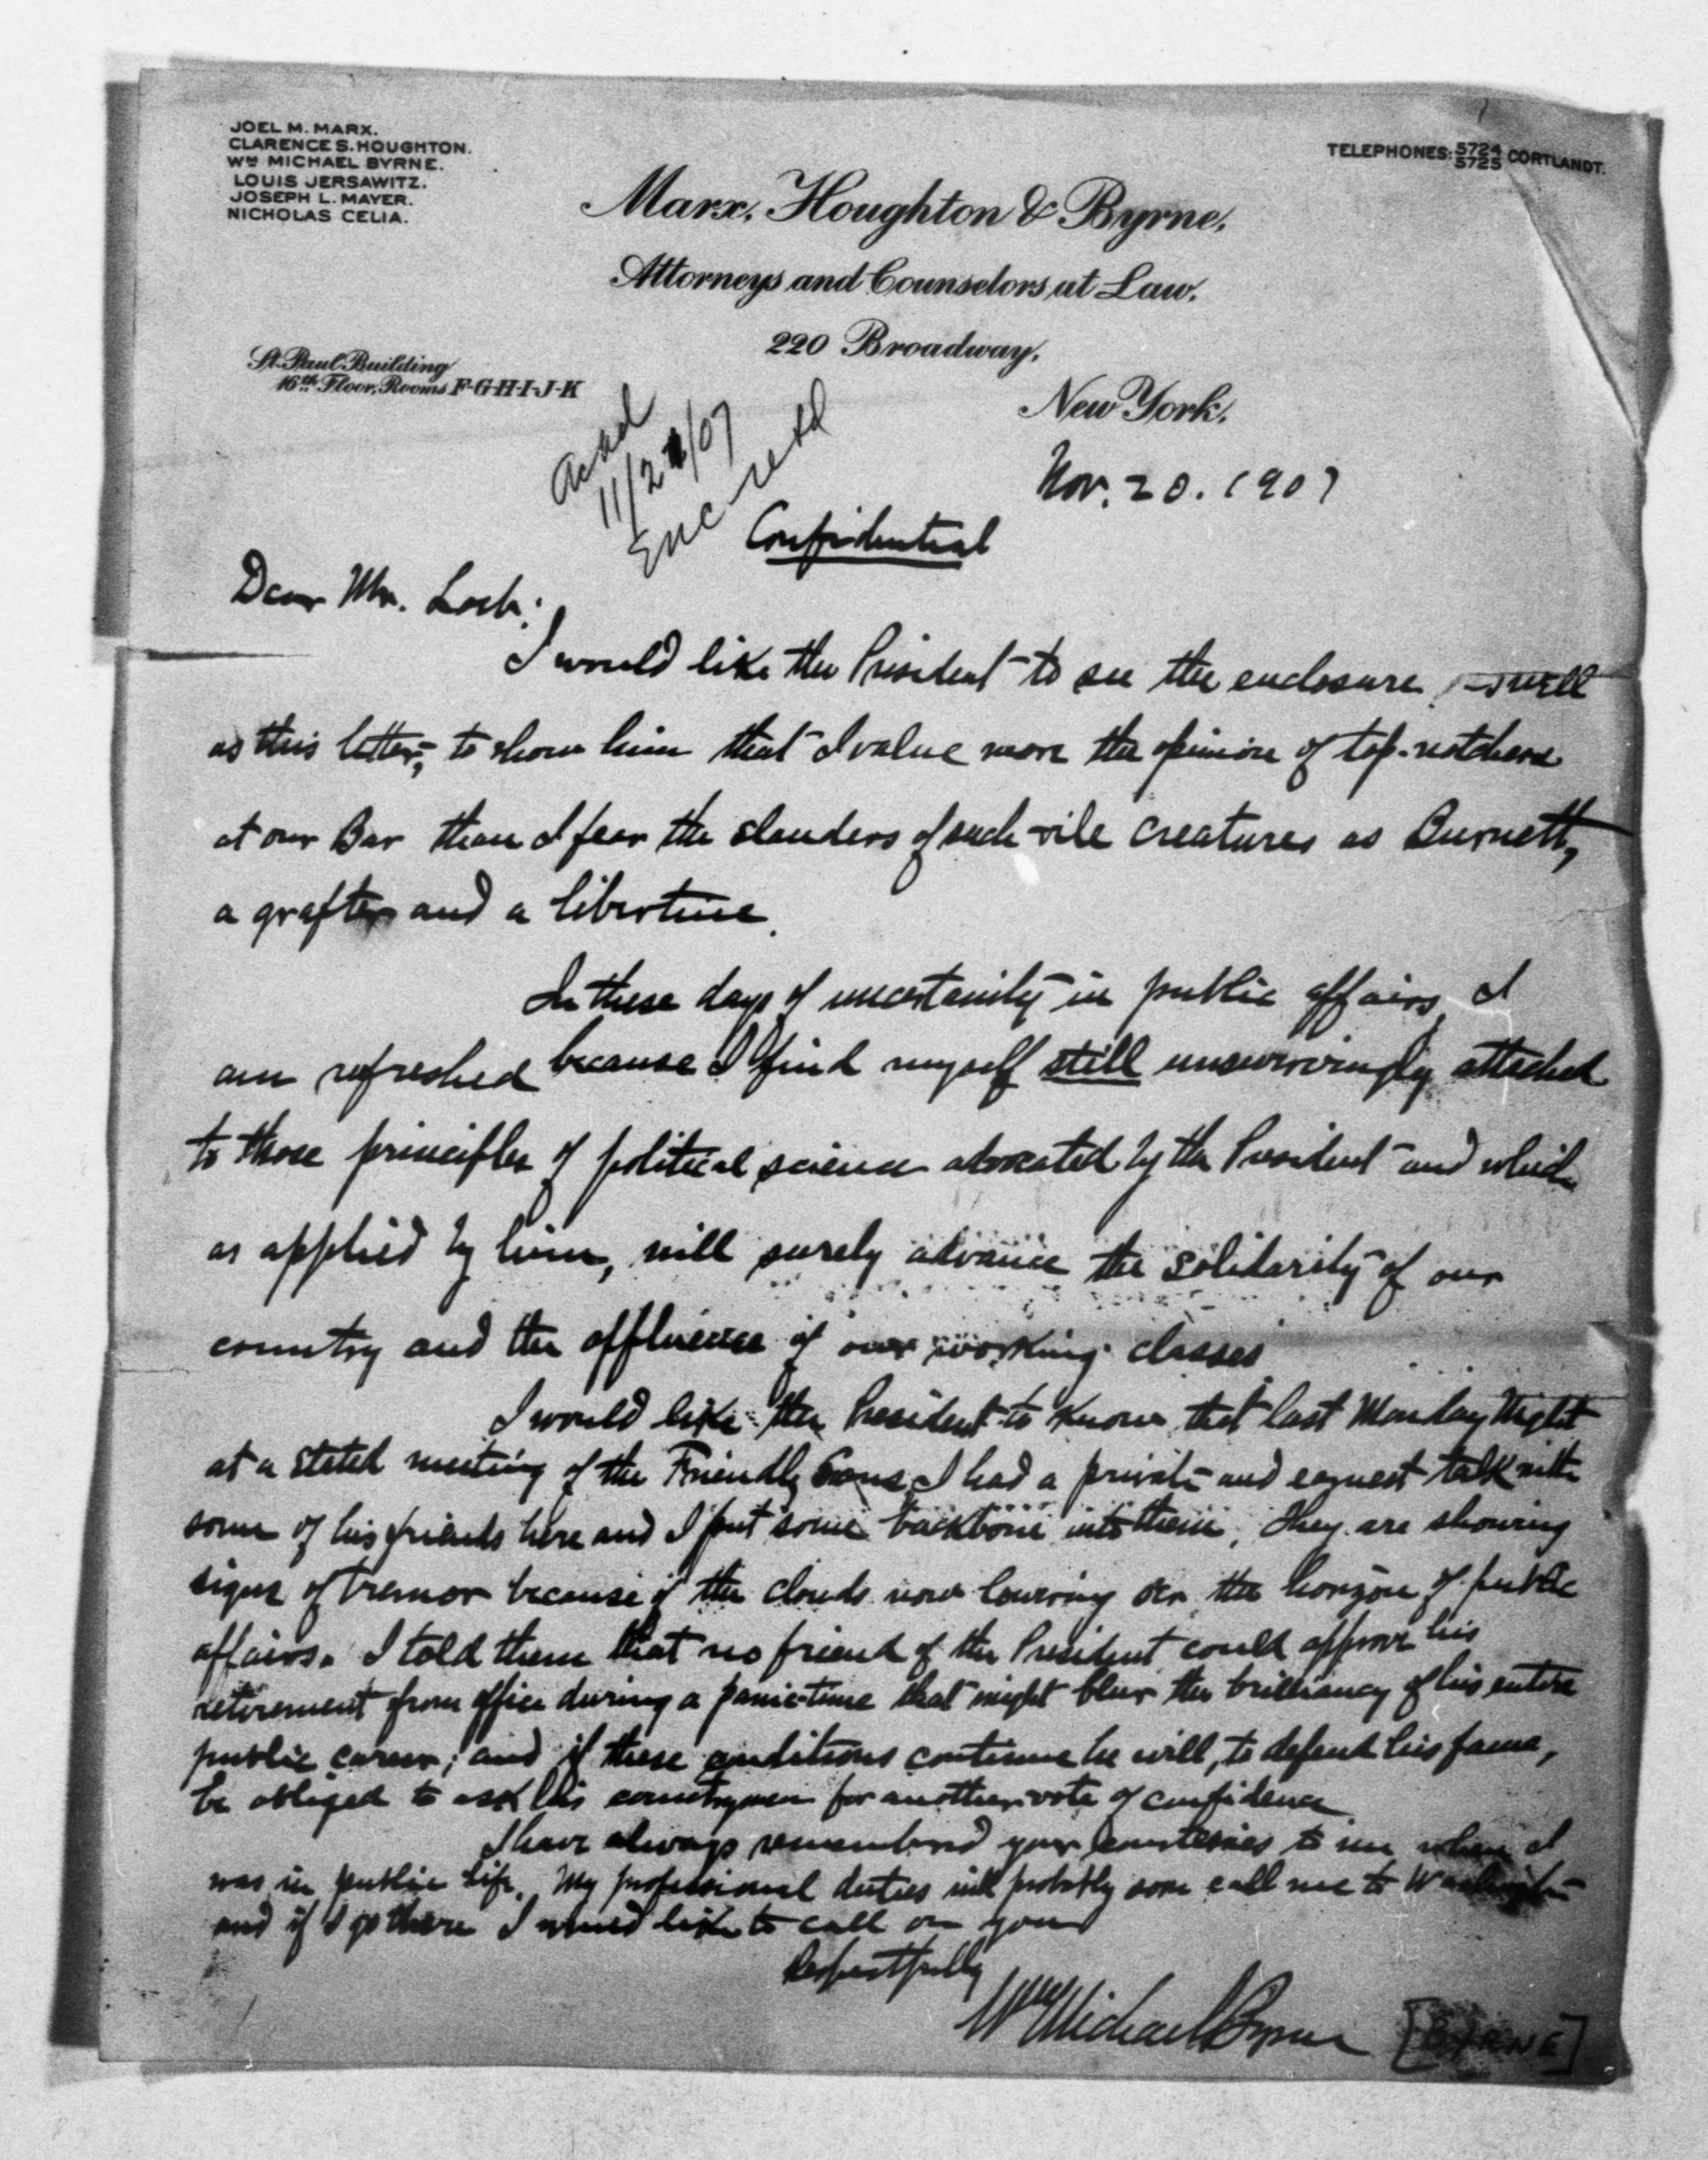 JOEL M. MARX.
CLARENCE S. HOUGHTON.
WM MICHAEL BYRNE.
LOUIS JERSAWITZ.
JOSEPH L. MAYER.
NICHOLAS CELIA.
TELEPHONES: 5724 5725 CORTLANDT.
Marx, Houghton & Byrne,
Attorneys and Counselors at Law,
220 Broadway,
St. Paul Building
16th Floor, Rooms F-G-H-I-J-K
New York,
Ackd
11/21/07
Enc retd
Nov. 20. 1907
Confidential
Dear Mr. Loeb:
I would like the President to see the enclosure, as well
as this letter, to show him that I value more the opinion of top-notchers
at our Bar than I fear the slanders of such vile creatures as Burnett,
a grafter and a libertine.
In these days of uncertainity in public affairs, I
am refreshed because I find myself still unswervingly attached
to those principles of political science advocated by the President and which
as applied by him, will surely advance the solidarity of our
country and the affluence of our working classes
I would like the President to know that last Monday Night
at a stated meeting of the Friendly Sons, I had a private and earnest talk with
some of his friends here and I put some backbone into them. They are showing
signs of tremor because of the clouds now lowering o'er the horizon of public
affairs. I told them that no friend of the President could approve his
retirement from office during a panic-time that might blur the brilliancy of his entire
public career; and if these conditions continue he will, to defend his fame,
be obliged to ask his countrymen for another vote of confidence
I have always remembered your courtesies to me when I
was in public life. My professional duties will probably soon call me to Washington
and if I go there I would like to call on you
Respectfully
Wm Michael Byrne [BYRNE]